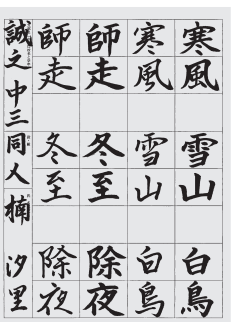 寒風 雪山 白鳥
寒風 雪山 白鳥
師走 冬至 除夜
師走 冬至 除夜
誠之中三同人 楠 汐里